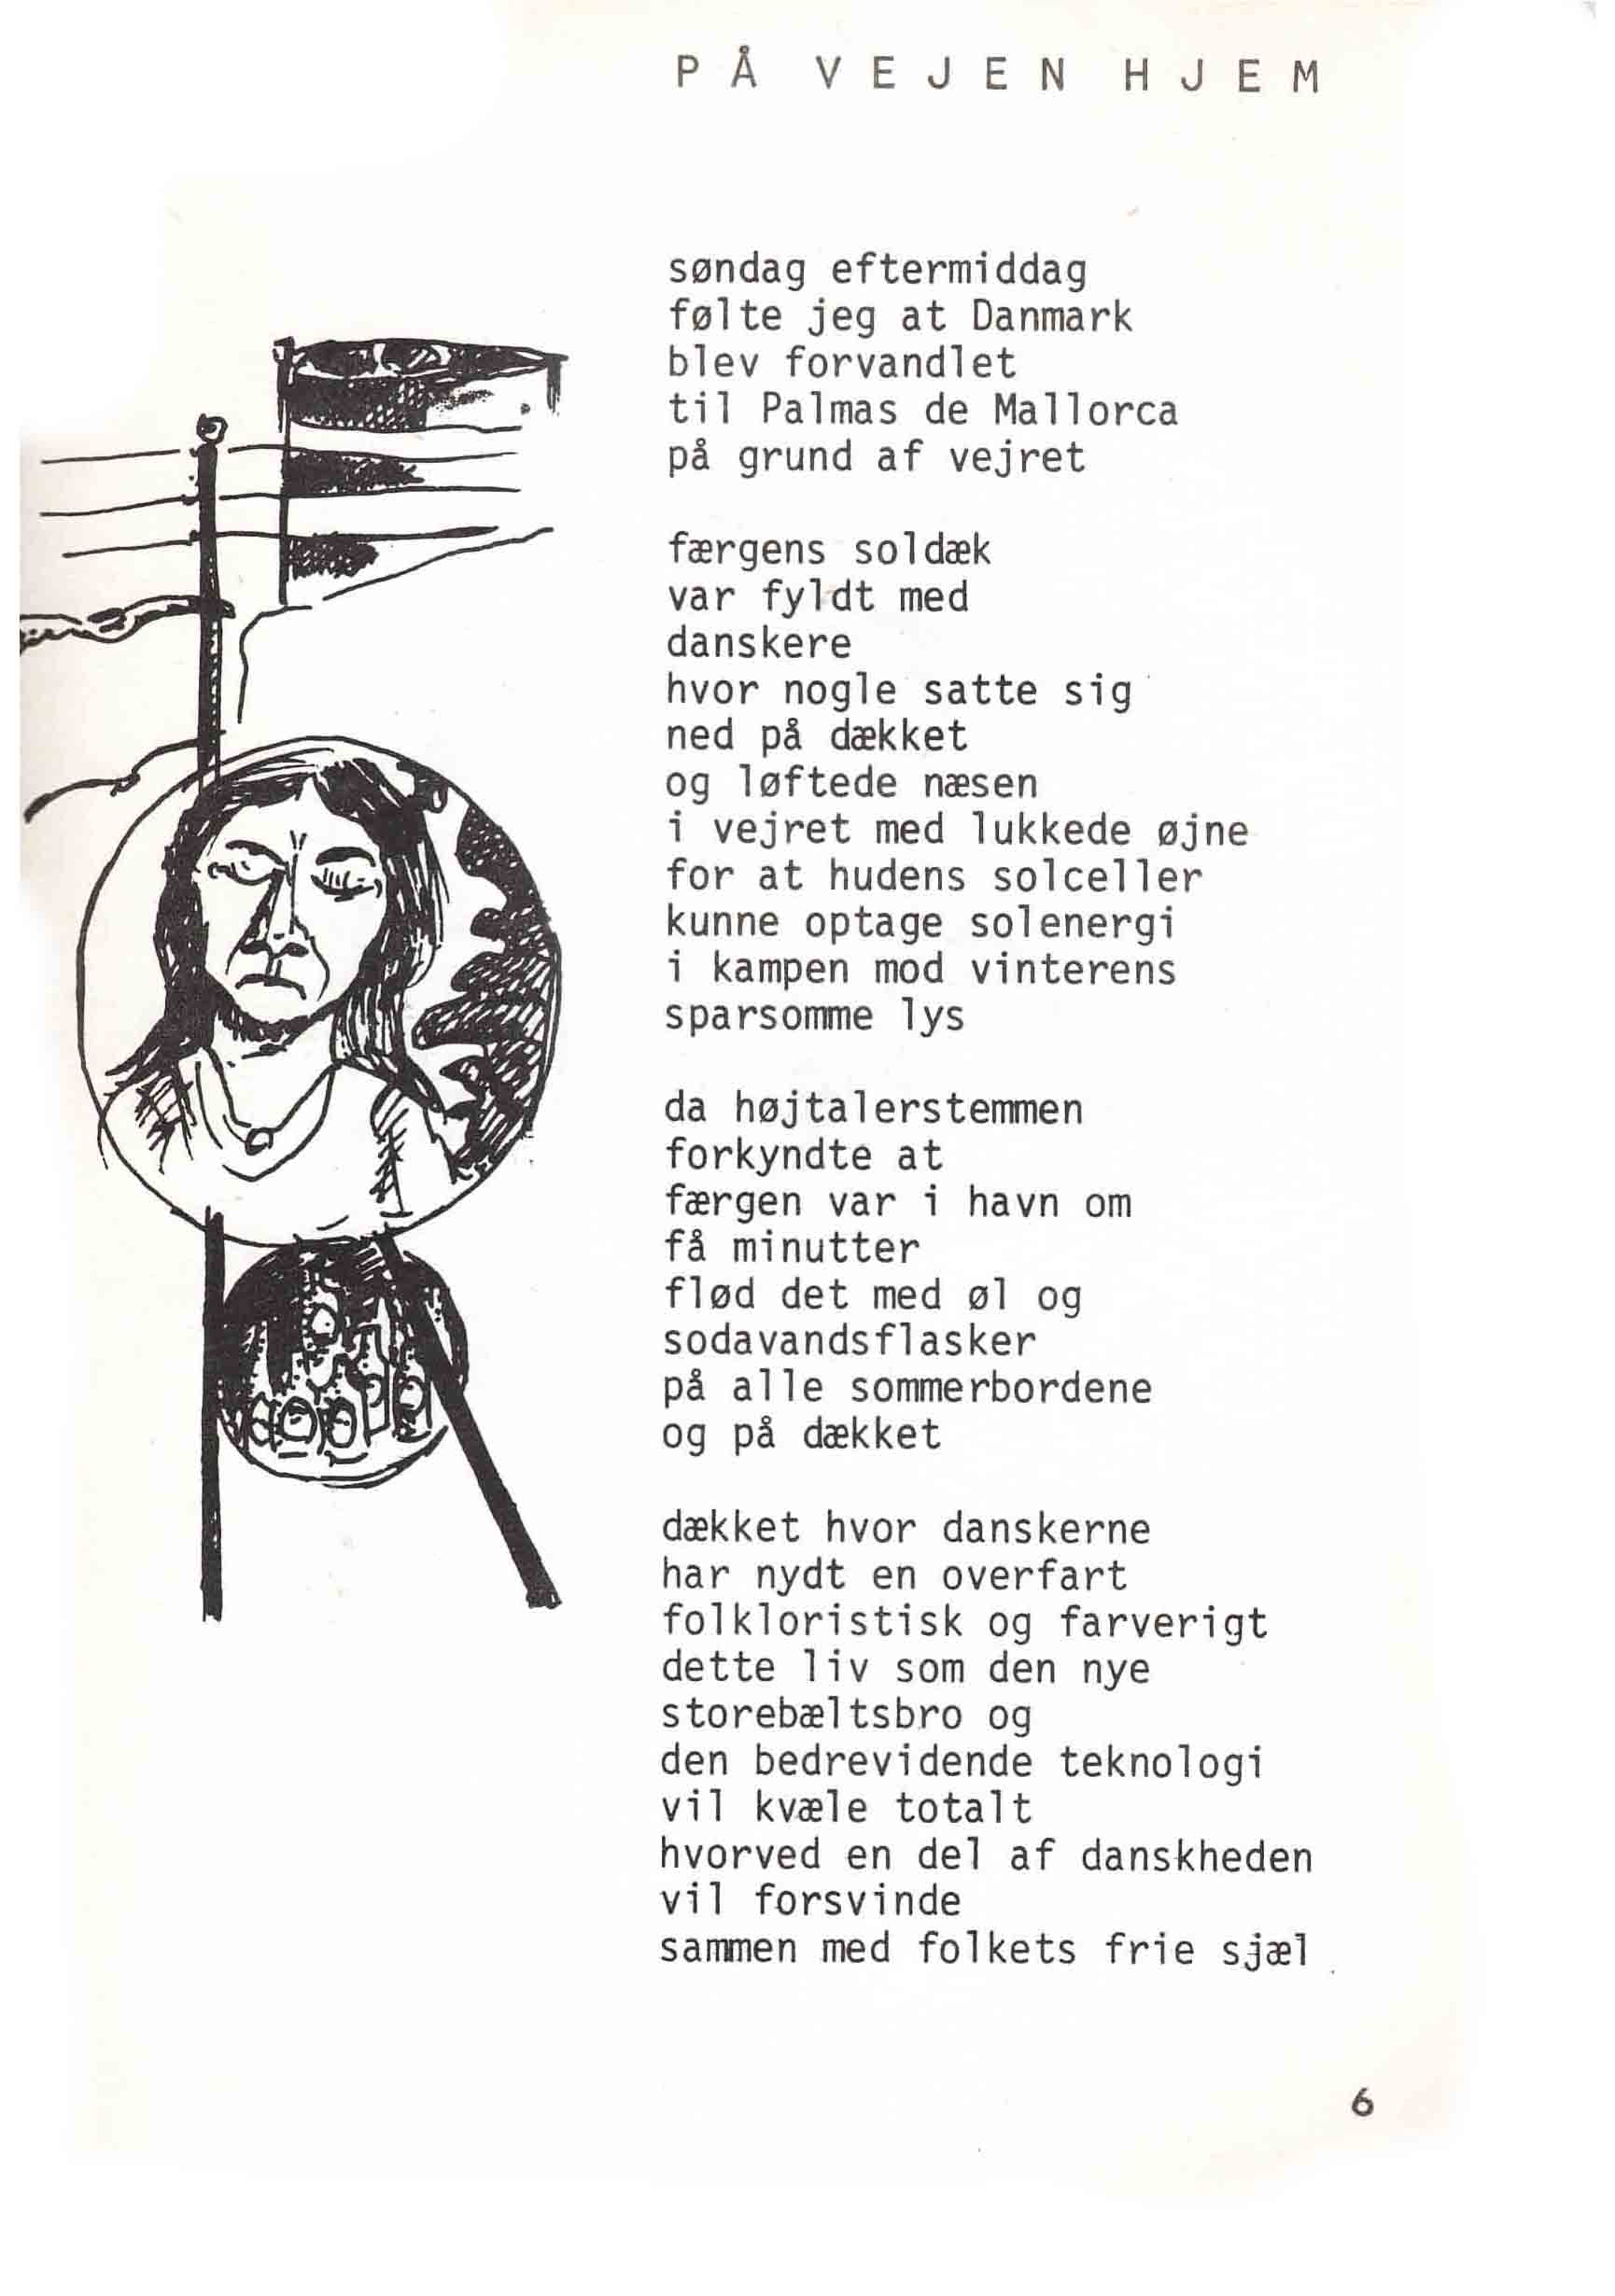 PÅ VEJEN HJEM
søndag eftermiddag
følte jeg at Danmark
blev forvandlet
til Palmas de Mallorca
på grund af vejret
færgens soldæk
var fyldt med
danskere
hvor nogle satte sig
ned på dækket
og løftede næsen
i vejret med lukkede øjne
for at hudens solceller
kunne optage solenergi
i kampen mod vinterens
sparsomme lys
da højtalerstemmen
forkyndte at
færgen var i havn om
få minutter
flød det med øl og
sodavandsflasker
på alle sommerbordene
og på dækket
dækket hvor danskerne
har nydt en overfart
folkloristisk og farverigt
dette liv som den nye
storebæltsbro og
den bedrevidende teknologi
vil kvæle totalt
hvorved en del af danskheden
vil forsvinde
sammen med folkets frie sjæl
6